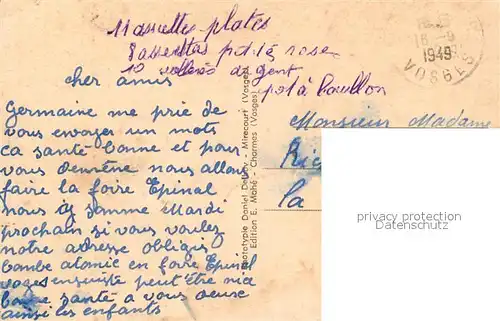 Massettes plates
Passettes pot lés rose
10 cuillères argent
pot à bouillon
18-9
1949
VOSGES
cher amis
Germaine me prie de
vous envoyer un mots
ca santé bonne et pour
vous demène nous allons
faire la foire Epinal
nous ty semme Mardi
prochain si vous voulez
notre adresse obligés
bombe atomic en foire Epinal
voges ensuiste peut être nice
bonne santé a vous deuse
ainsi les enfants
Phototypie Daniel Delboy - Mirecourt (Vosges)
Edition E. Mahé - Charmes (Vosges)
Monsieur Madame
Ric
la
privacy protection
Datenschutz